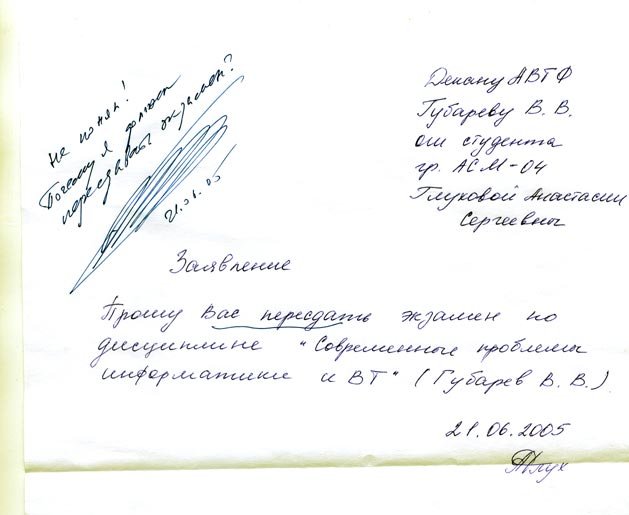 Не понял!
Почему я должен
пересдавать экзамен?
21.06.05
Декану АВТФ
Губареву В. В.
от студента
гр. АСМ-04
Глуховой Анастасии
Сергеевны
Заявление
Прошу Вас пересдать экзамен по
дисциплине "Современные проблемы
информатики и ВТ" (Губарев В. В.)
21.06.2005
Глух